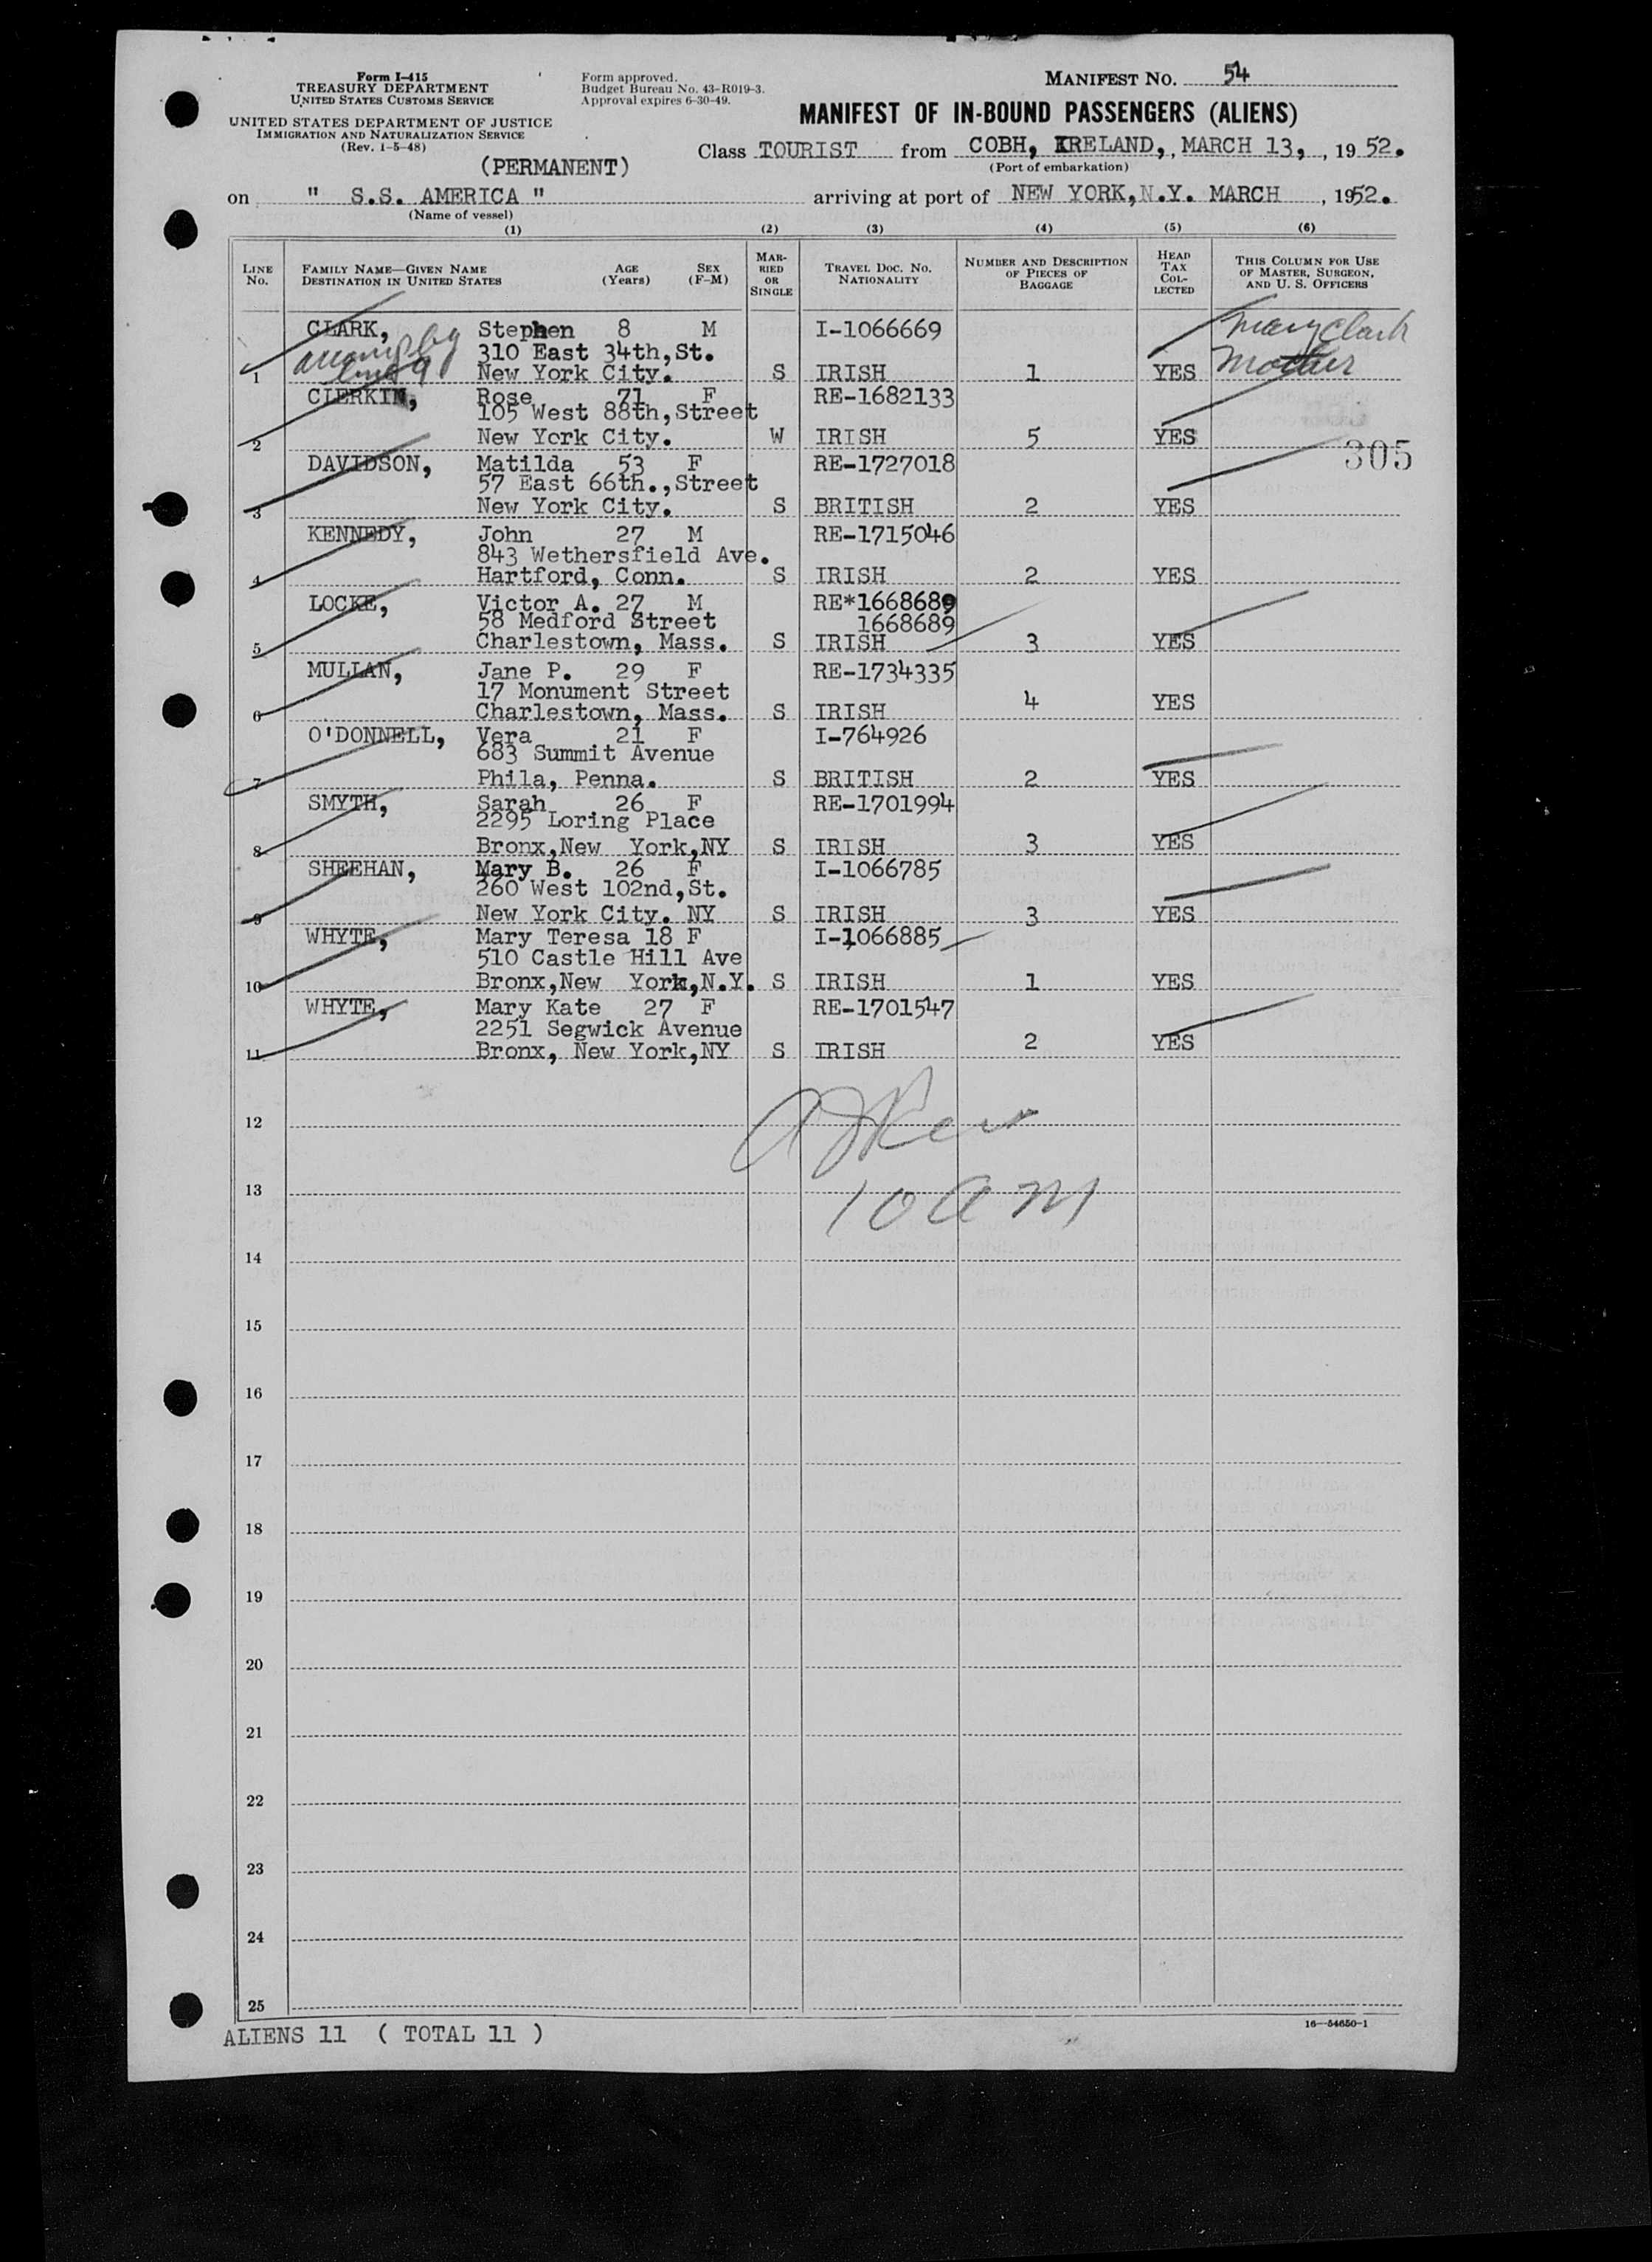 Form I-415
TREASURY DEPARTMENT
UNITED STATES CUSTOMS SERVICE
UNITED STATES DEPARTMENT OF JUSTICE
IMMIGRATION AND NATURALIZATION SERVICE
(Rev. 1-5-48)
Form approved.
Budget Bureau No. 43-R019-3.
Approval expires 6-30-49.
MANIFEST NO. 54
MANIFEST OF IN-BOUND PASSENGERS (ALIENS)
(PERMANENT)
Class TOURIST from COBH, IRELAND, , MARCH 13, , 19 52.
(Port of embarkation)
on " S.S. AMERICA " arriving at port of NEW YORK, N.Y. MARCH , 1952.
(Name of vessel)
(1) (2) (3) (4) (5) (6)
LINE NO.
FAMILY NAME—GIVEN NAME AGE SEX
DESTINATION IN UNITED STATES (Years) (F-M)
MAR-
RIED
OR
SINGLE
TRAVEL DOC. NO.
NATIONALITY
NUMBER AND DESCRIPTION
OF PIECES OF
BAGGAGE
HEAD
TAX
COL-
LECTED
THIS COLUMN FOR USE
OF MASTER, SURGEON,
AND U. S. OFFICERS
CLARK, Stephen 8 M I-1066669 Mary Clark
310 East 34th,St.
1 New York City. S IRISH 1 YES Mother
CLERKIN, Rose 71 F RE-1682133
105 West 88th,Street
2 New York City. W IRISH 5 YES
305
DAVIDSON, Matilda 53 F RE-1727018
57 East 66th.,Street
3 New York City. S BRITISH 2 YES
KENNEDY, John 27 M RE-1715046
843 Wethersfield Ave.
4 Hartford, Conn. S IRISH 2 YES
LOCKE, Victor A. 27 M RE*1668689
58 Medford Street 1668689
5 Charlestown, Mass. S IRISH 3 YES
MULLAN, Jane P. 29 F RE-1734335
17 Monument Street
6 Charlestown, Mass. S IRISH 4 YES
O'DONNELL, Vera 21 F I-764926
683 Summit Avenue
7 Phila, Penna. S BRITISH 2 YES
SMYTH, Sarah 26 F RE-1701994
2295 Loring Place
8 Bronx,New York,NY S IRISH 3 YES
SHEEHAN, Mary B. 26 F I-1066785
260 West 102nd,St.
9 New York City. NY S IRISH 3 YES
WHYTE, Mary Teresa 18 F I-1066885
510 Castle Hill Ave
10 Bronx,New York,N.Y. S IRISH 1 YES
WHYTE, Mary Kate 27 F RE-1701547
2251 Segwick Avenue
11 Bronx, New York,NY S IRISH 2 YES
12
13
10 AM
14
15
16
17
18
19
20
21
22
23
24
25
ALIENS 11 ( TOTAL 11 )
16—54650-1